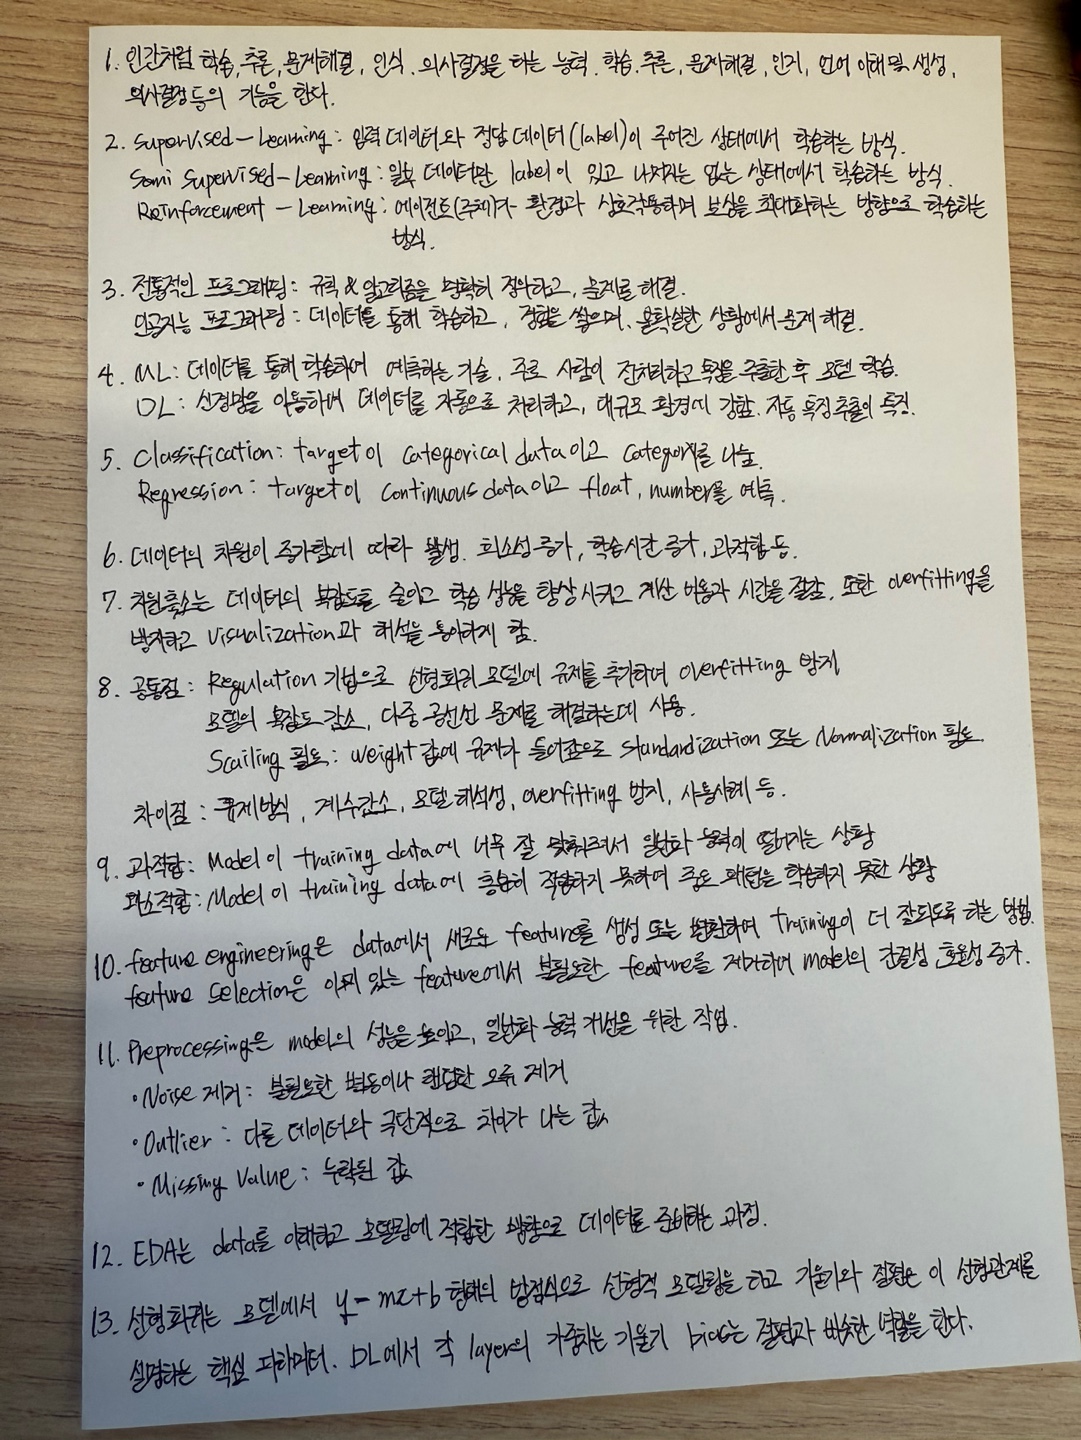 1. 인간처럼 학습, 추론, 문제해결, 인식, 의사결정을 하는 능력. 학습, 추론, 문제해결, 인지, 언어 이해 및 생성,
의사결정 등의 기능을 한다.
2. Supervised-Learning: 입력 데이터와 정답 데이터(label)이 주어진 상태에서 학습하는 방식.
Semi Supervised-Learning: 일부 데이터만 label이 있고 나머지는 없는 상태에서 학습하는 방식.
Reinforcement-Learning: 에이전트(주체)가 환경과 상호작용하며 보상을 최대화하는 방향으로 학습하는
방식.
3. 전통적인 프로그래밍: 규칙 & 알고리즘을 명확히 정의하고, 문제를 해결.
인공지능 프로그래밍: 데이터를 통해 학습하고, 경험을 쌓으며, 불확실한 상황에서 문제 해결.
4. ML: 데이터를 통해 학습하여 예측하는 기술, 주로 사람이 전처리하고 특징을 추출한 후 모델 학습.
DL: 신경망을 이용하여 데이터를 자동으로 처리하고, 대규모 환경에 강함. 자동 특징 추출이 특징.
5. Classification: target이 categorical data이고 category를 나눔.
Regression: target이 continuous data이고 float, number를 예측.
6. 데이터의 차원이 증가함에 따라 발생. 희소성 증가, 학습시간 증가, 과적합 등.
7. 차원축소는 데이터의 복잡도를 줄이고 학습 성능을 향상 시키고 계산 비용과 시간을 절감. 또한 overfitting을
방지하고 visualization과 해석을 용이하게 함.
8. 공통점: Regulation 기법으로 선형회귀 모델에 규제를 추가하여 overfitting 방지
모델의 복잡도 감소, 다중 공선선 문제를 해결하는데 사용.
Scailing 필요: weight 값에 규제가 들어감으로 standardization 또는 Normalization 필요.
차이점: 규제방식, 계수감소, 모델 해석성, overfitting 방지, 사용사례 등.
9. 과적합: Model이 training data에 너무 잘 맞춰져서 일반화 능력이 떨어지는 상황
과소적합: Model이 training data에 충분히 적합하지 못하여 중요 패턴을 학습하지 못한 상황
10. feature engineering은 data에서 새로운 feature를 생성 또는 변환하여 training이 더 잘되도록 하는 방법.
feature selection은 이미 있는 feature에서 불필요한 feature를 제거하여 model의 간결성, 효율성 증가.
11. Preprocessing은 model의 성능을 높이고, 일반화 능력 개선을 위한 작업.
• Noise 제거: 불필요한 변동이나 랜덤한 오류 제거
• Outlier: 다른 데이터와 극단적으로 차이가 나는 값
• Missing Value: 누락된 값
12. EDA는 data를 이해하고 모델링에 적합한 방향으로 데이터를 준비하는 과정.
13. 선형회귀는 모델에서 y=mx+b 형태의 방정식으로 선형적 모델링을 하고 기울기와 절편은 이 선형관계를
설명하는 핵심 파라미터. DL에서 각 layer의 가중치는 기울기 bias는 절편과 비슷한 역할을 한다.